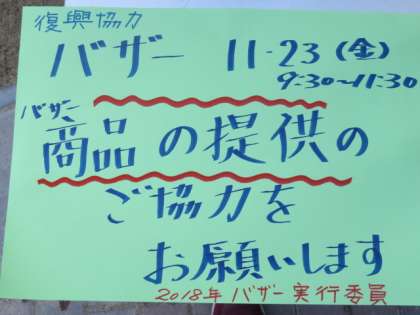 復興協力
バザー 11-23(金)
9:30~11:30
バザー
商品の提供の
ご協力を
お願いします
2018年 バザー実行委員